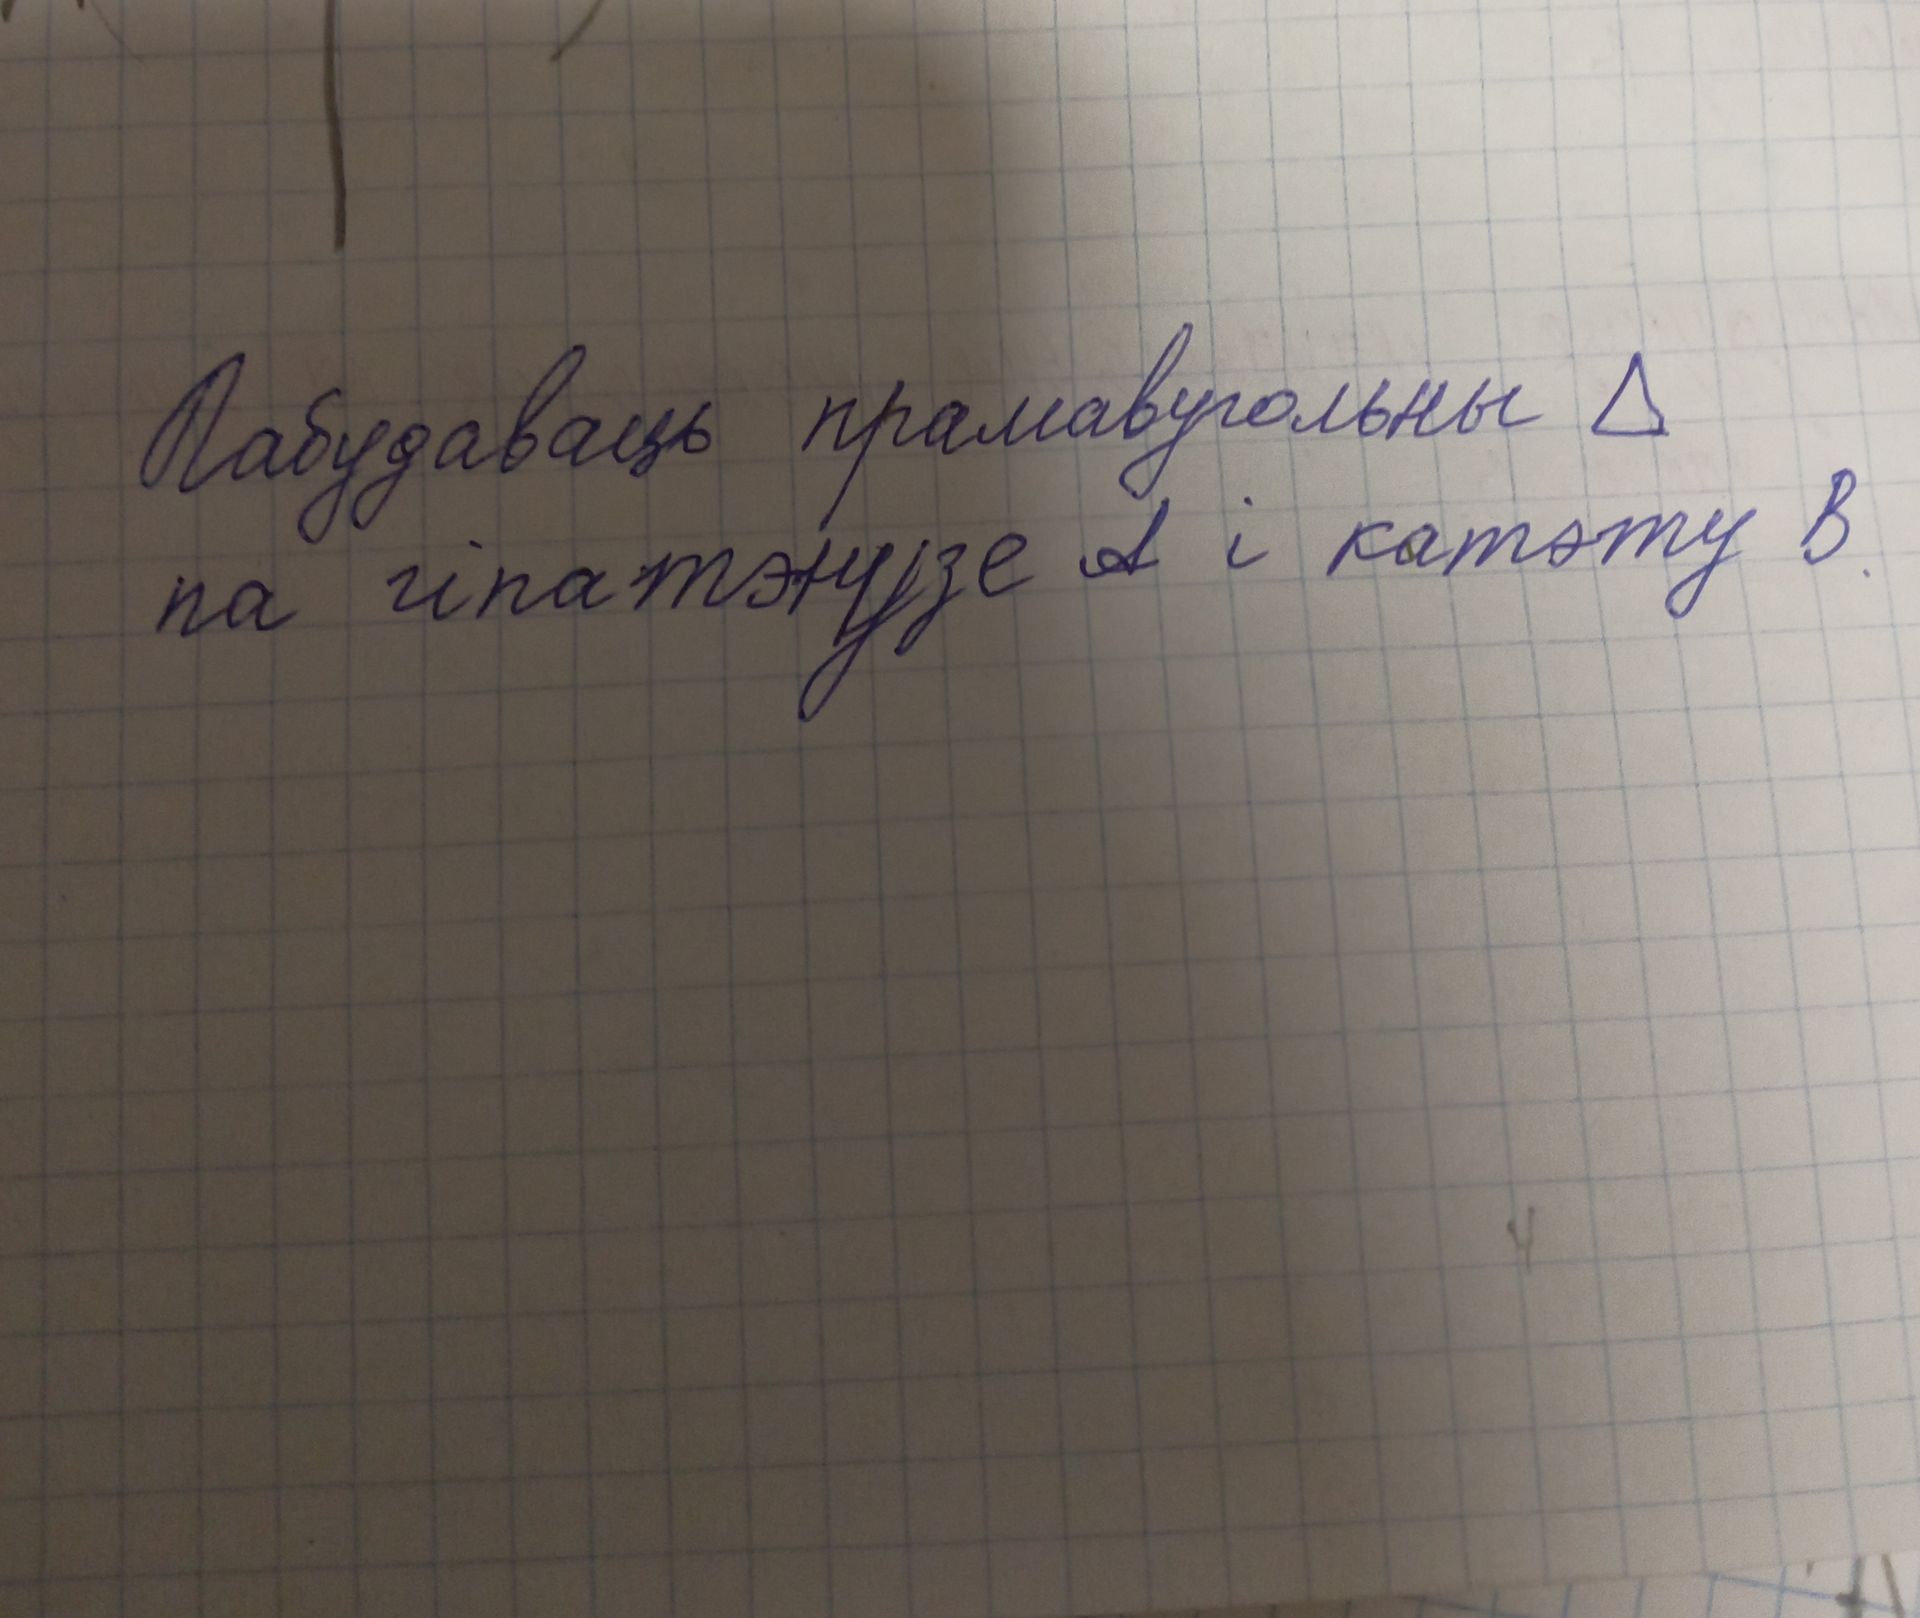 Пабудаваць прамавугольны Δ
па гіпатэнузе А і катэту В.